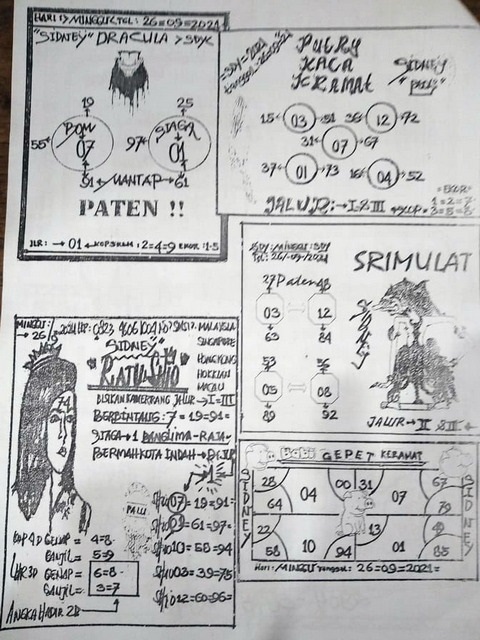 HARI :> MINGGU<, TGL : 26=09=2021
"SIDNEY" DRACULA > SDY<
19
25
BOM
07
55
SIAGA
01
97
91 MANTAP 61
PATEN !!
JLR : → 01 KOP : 2=4=9 EKOR : 1-5
=SDY=2021
PUTRY
KACA
KERAMAT
SIDNEY
15 03 51 36 12 72
31 07 67
37 01 73 16 04 52
JALUR : → I=2=III
=EKOR=
1=2=7
3=5=8
SDY : MINGGU : SDY
Tgl : 26/-09/2021
SRIMULAT
27 Paten 48
03 12
63 84
53 56
05 08
89 92
SYDNEY
JALUR → II & III
MINGGU :
26
SIDNEY
RATU SHIO
MALAYSIA
SINGAPORE
HONGKONG
HOKKIAN
MACAU
74
BISIKAN KAMERRANG JALUR → I=III
BERBINTANG : 7 = 19=91=
SIAGA → 1 PANGLIMA - RAJA
BERMAHKOTA INDAH →
PALU
SHIO 07 = 19=91=
SHIO 01 = 61=97=
SHIO 10 = 58=94
SHIO 03 = 39=75
SHIO 12 = 60=96=
KOP 4D GENAP = 4=8
GANJIL = 5=9
LHR 3D GENAP = 6=8
GANJIL = 3=7
ANGKA HADIR 2D
BABI GEPET KERAMAT
SIDNEY
28 04 00 31 07 67
64 79
22 13 49
58 10 94 01 85
SIDNEY
HARI : MINGGU TANGGAL : 26=09=2021=